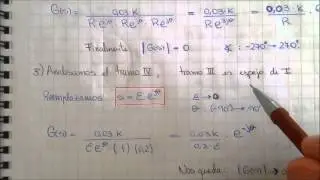 G(s) = 0,03·K / Re^jθ Re^jθ Re^jθ = 0,03·K / R
Finalmente |G(s)| = 0 : -270° → 270°
3) Analizamos el tramo IV, tramo III es espejo de I
Reemplazamos s = ε·e^jθ ε → 0
G(s) = 0,03·K / εe^jθ (1)(0,2) = 0,03·K / 0,2·ε · e^-jθ
Nos queda: |G(s)| →